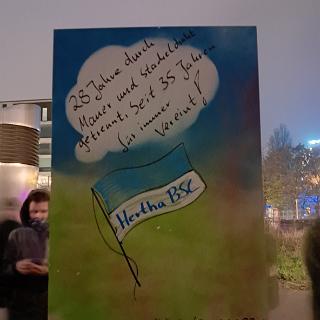 28 Jahre durch
Mauer und Stacheldraht
getrennt. Seit 35 Jahren
für immer
vereint!
Hertha BSC